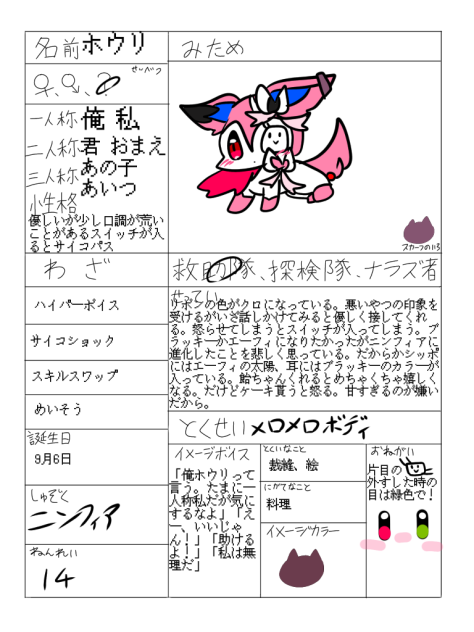 名前ホウリ
みため
せいべつ
♀、♂、?
一人称 俺 私
二人称 君 おまえ
三人称 あの子
あいつ
性格
優しいが少し口調が荒い
ことがあるスイッチが入
るとサイコパス
スカーフのいろ
わざ
ハイパーボイス
サイコショック
スキルスワップ
めいそう
救助隊、探検隊、ナラズ者
せってい
リボンの色がクロになっている。悪いやつの印象を
受けるがいざ話しかけてみると優しく接してくれ
る。怒らせてしまうとスイッチが入ってしまう。ブ
ラッキーかエーフィになりたかったがニンフィアに
進化したことを悲しく思っている。だからかシッポ
にはエーフィの太陽、耳にはブラッキーのカラーが
入っている。飴ちゃんくれるとめちゃくちゃ嬉しく
なる。だけどケーキ貰うと怒る。甘すぎるのが嫌い
だから。
とくせいメロメロボディ
誕生日
9月6日
しゅぞく
ニンフィア
ねんれい
14
イメージボイス
「俺ホウリって
言う。たまに一
人称私だが気に
するなよ」「え
ー、いいじゃ
ん!」「助ける
よ!」「私は無
理だ」
とくいなこと
裁縫、絵
にがてなこと
料理
イメージカラー
おねがい
片目の
外すした時の
目は緑色で!